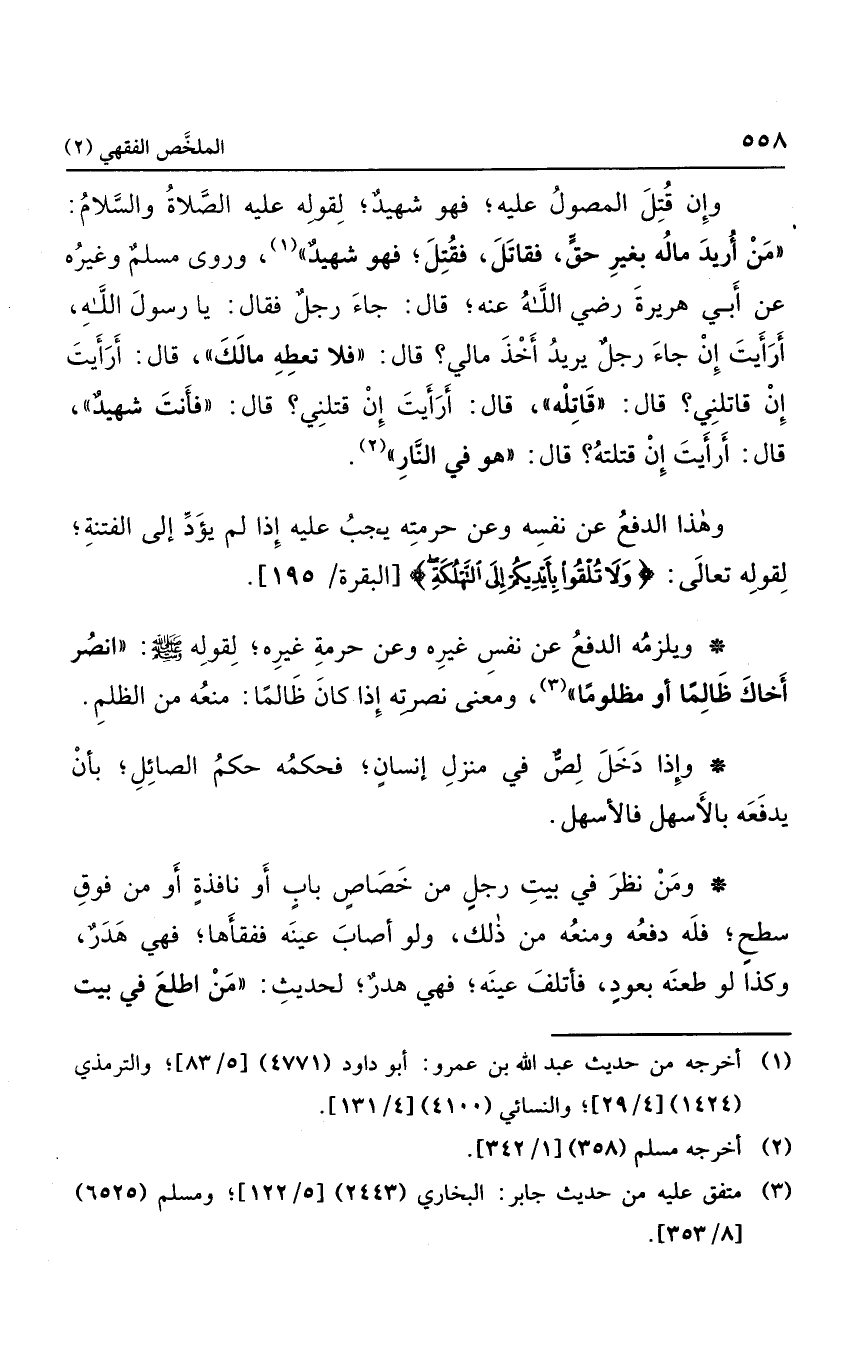 ٥٥٨
الملخَّص الفقهي (٢)
وإِن قُتِلَ المصولُ عليه؛ فهو شهيدٌ؛ لِقولِه عليه الصَّلاةُ والسَّلامُ:
«مَنْ أُريدَ مالُه بغيرِ حقٍّ، فقاتَلَ، فقُتِلَ؛ فهو شهيدٌ»(١)، وروى مسلمٌ وغيرُه
عن أَبـي هريرةَ رضي اللَّهُ عنه؛ قال: جاءَ رجلٌ فقال: يا رسولَ اللَّهِ،
أَرَأَيتَ إِنْ جاءَ رجلٌ يريدُ أَخْذَ مالي؟ قال: «فلا تعطِهِ مالَكَ»، قال: أَرَأَيتَ
إِنْ قاتلنِي؟ قال: «قَاتِلْه»، قال: أَرَأَيتَ إِنْ قتلنِي؟ قال: «فأَنتَ شهيدٌ»،
قال: أَرأَيتَ إِنْ قتلتهُ؟ قال: «هو في النَّارِ»(٢).
وهٰذا الدفعُ عن نفسِه وعن حرمتِه يجبُ عليه إِذا لم يؤَدِّ إلى الفتنةِ؛
لِقولِه تعالَى: ﴿وَلَا تُلْقُوا۟ بِأَيْدِيكُمْ إِلَى ٱلتَّهْلُكَةِۛ﴾ [البقرة/ ١٩٥].
* ويلزمُه الدفعُ عن نفسِ غيرِه وعن حرمةِ غيرِه؛ لِقولِه ﷺ: «انصُر
أَخاكَ ظَالِمًا أو مظلومًا»(٣)، ومعنى نصرتِه إِذا كانَ ظَالمًا: منعُه من الظلمِ.
* وإِذا دَخَلَ لِصٌّ في منزلِ إنسانٍ؛ فحكمُه حكمُ الصائِلِ؛ بأنْ
يدفَعَه بالأَسهل فالأسهل.
* ومَنْ نظرَ في بيتِ رجلٍ من خَصَاصٍ بابٍ أَو نافذةٍ أَو من فوقِ
سطحٍ؛ فلَه دفعُه ومنعُه من ذٰلك، ولو أصابَ عينَه ففقأَها؛ فهي هَدَرٌ،
وكذا لو طعنَه بعودٍ، فأتلفَ عينَه؛ فهي هدرٌ؛ لحديثِ: «مَنْ اطلعَ في بيت
(١) أخرجه من حديث عبد الله بن عمرو: أبو داود (٤٧٧١) [٨٣/٥]؛ والترمذي
(١٤٢٤) [٢٩/٤]؛ والنسائي (٤١٠٠) [١٣١/٤].
(٢) أخرجه مسلم (٣٥٨) [٣٤٢/١].
(٣) متفق عليه من حديث جابر: البخاري (٢٤٤٣) [١٢٢/٥]؛ ومسلم (٦٥٢٥)
[٣٥٣/٨].